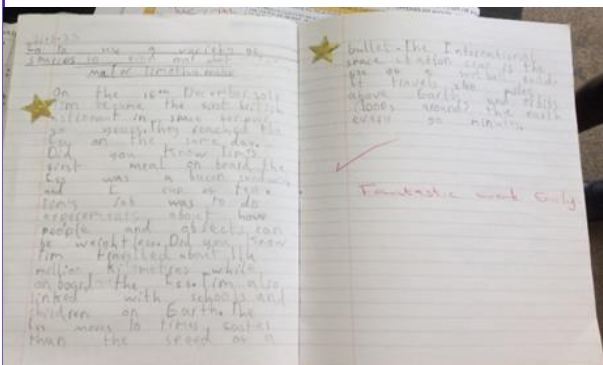 To use a variety of
sources to find out about
major Timothy Peake
On the 15th December 2015
Tim became the first british
astronaut in space for over
20 years. They reached the
Iss on the same day.
Did you know Tim's
first meal on board the
Iss was a bacon sandwich
and a cup of tea.
Tim's Job was to do
experements about how
people and objects can
be weightless. Did you know
Tim travelled about
million kilometres while
on board the Iss. Tim also
linked with schools and
children on Earth. The
Iss moves 10 times faster
than the speed of a
bullet. The International
space station is the
size of a football
It travels miles
above Earth and orbits
(loops around) the earth
every 90 minutes.
Fantastic work